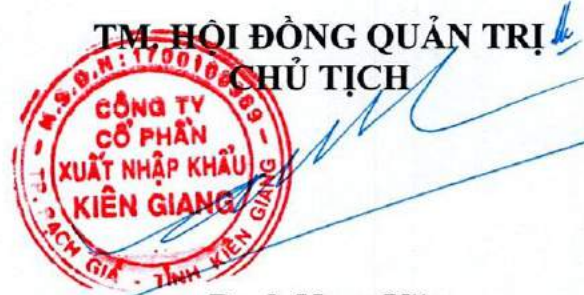 TM. HỘI ĐỒNG QUẢN TRỊ
CHỦ TỊCH
CÔNG TY
CỔ PHẦN
XUẤT NHẬP KHẨU
KIÊN GIANG
TP. RẠCH GIÁ - TỈNH KIÊN GIANG